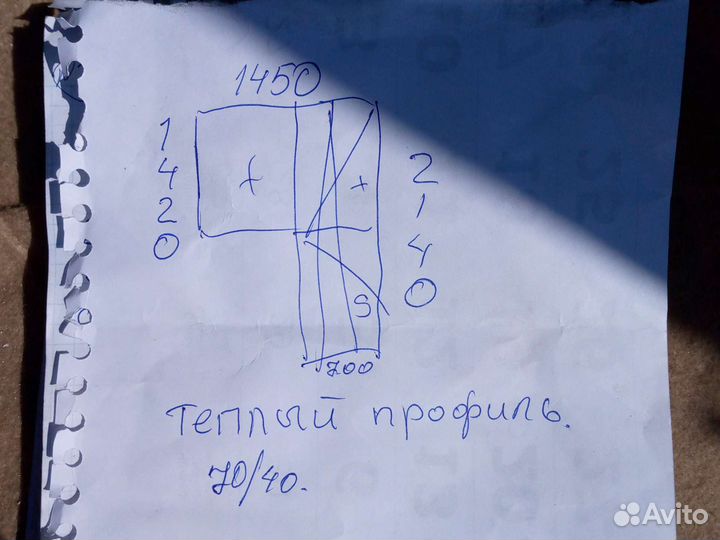 1450
1420
2140
S
700
теплый профиль.
70/40.
Avito